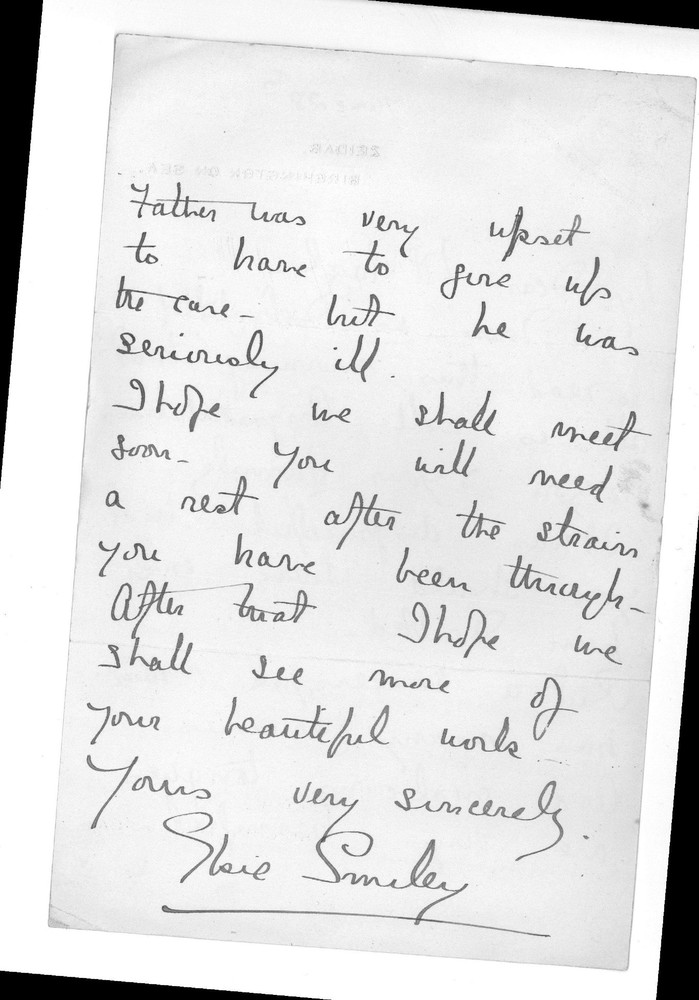 Father was very upset
to have to give up
the case - but he was
seriously ill.
I hope we shall meet
soon - you will need
a rest after the strain
you have been through -
After that I hope we
shall see more of
your beautiful work -
Yours very sincerely.
Elsie Smiley